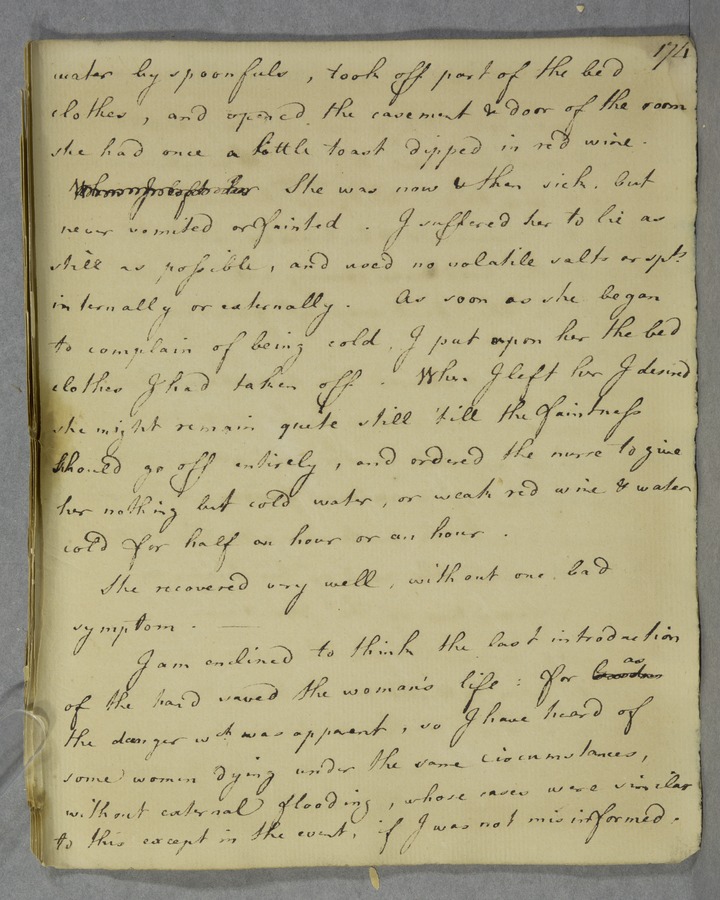 174
water by spoonfuls, took off part of the bed
clothes, and opened the casement & door of the room
she had once a little toast dipped in red wine.
She was now & then sick, but
never vomited or fainted. I suffered her to lie as
still as possible, and used no volatile salts or spts
internally or externally. As soon as she began
to complain of being cold, I put upon her the bed
clothes I had taken off. When I left her I desired
she might remain quite still 'till the faintness
should go off entirely, and ordered the nurse to give
her nothing but cold water, or weak red wine & water
cold for half an hour or an hour.
She recovered very well, without one bad
symptom. —
I am enclined to think the last introduction
of the hand saved the woman's life: for as
the danger wch was apparent, so I have heard of
some women dying under the same circumstances,
without external flooding, whose cases were similar
to this except in the event, if I was not misinformed.